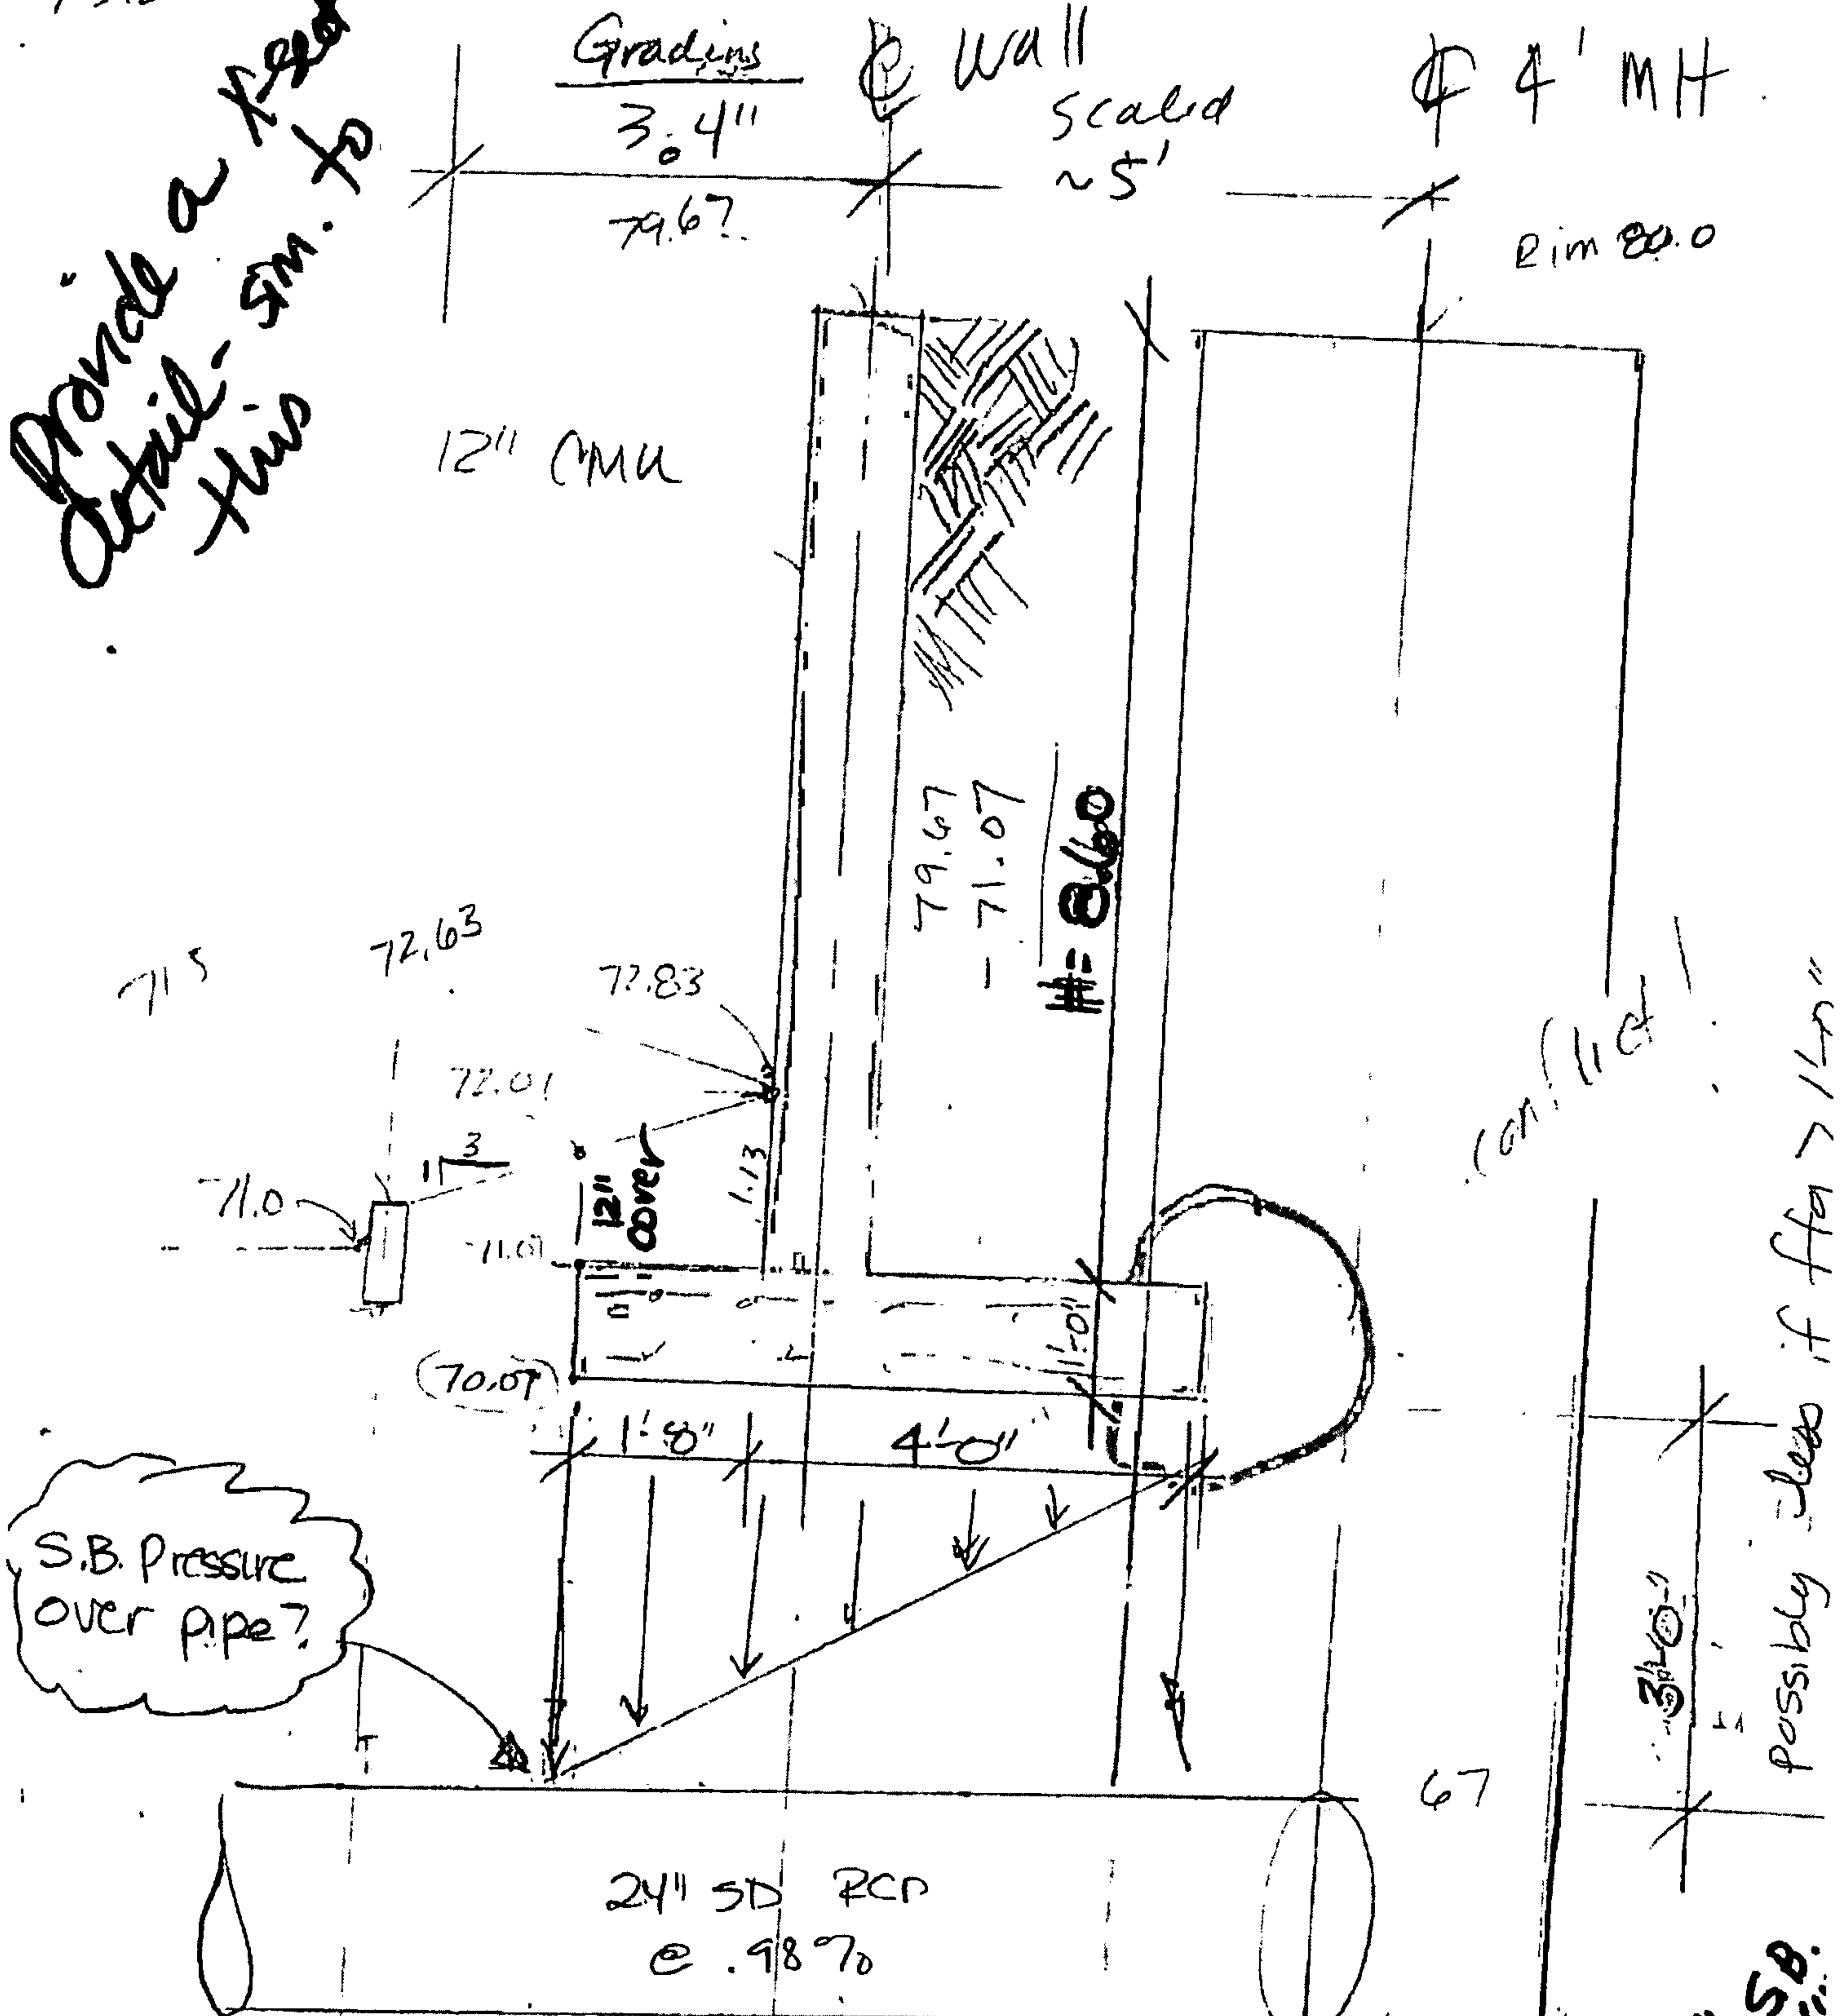 Provide a x-sec
detail - sim. to
this
Grading
3.4"
79.67
℄ Wall
scaled
~5'
℄ 4' MH
Rim 80.0
12" CMU
79.67
- 71.07
H= 8.60
72.63
72.83
72.07
3
1
71.0
12"
cover
1.13
71.07
1'-0"
(70.07)
1'-8"
4'-0"
conflict
S.B. Pressure
over pipe?
3'-0"
67
24" SD RCP
@ .98%
S.B.